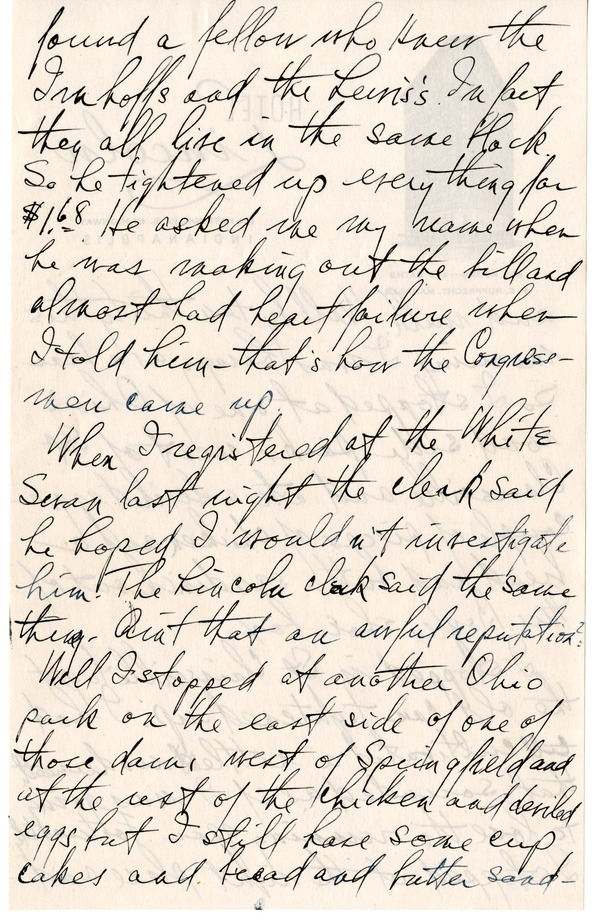 found a fellow who knew the
Imhoffs and the Lewis's. In fact
they all live in the same block.
So he tightened up everything for
$1.68 He asked me my name when
he was making out the bill and
almost had heart failure when
I told him - that's how the Congress-
men came up.
When I registered at the White
Swan last night the clerk said
he hoped I wouldn't investigate
him. The Lincoln clerk said the same
thing. Ain't that an awful reputation?
Well I stopped at another Ohio
park on the east side of one of
those dams west of Springfield and
at the rest of the chicken and deviled
eggs, but I still have some cup
cakes and bread and butter sand-